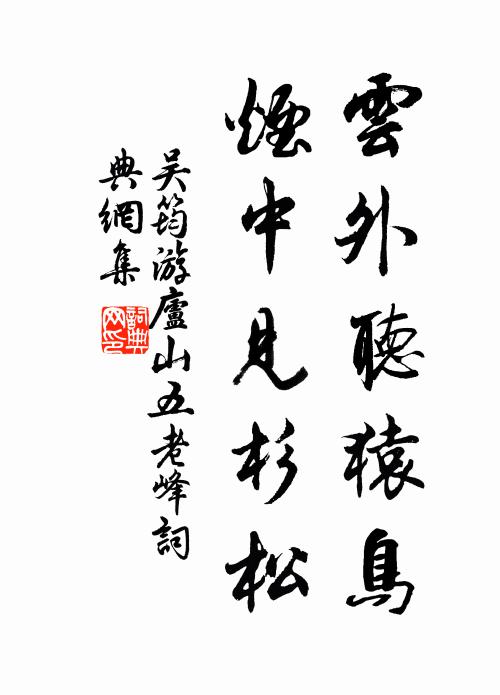 雲外聽猿鳥
煙中見杉松
吴筠游廬山五老峰詞
典網集
詞典
网印